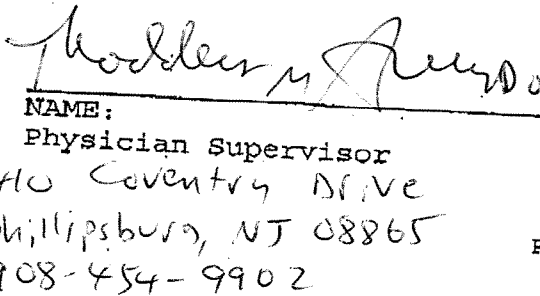 M DO
NAME:
Physician Supervisor
Coventry Drive
hillipsburg, NJ 08865
908-454-9902